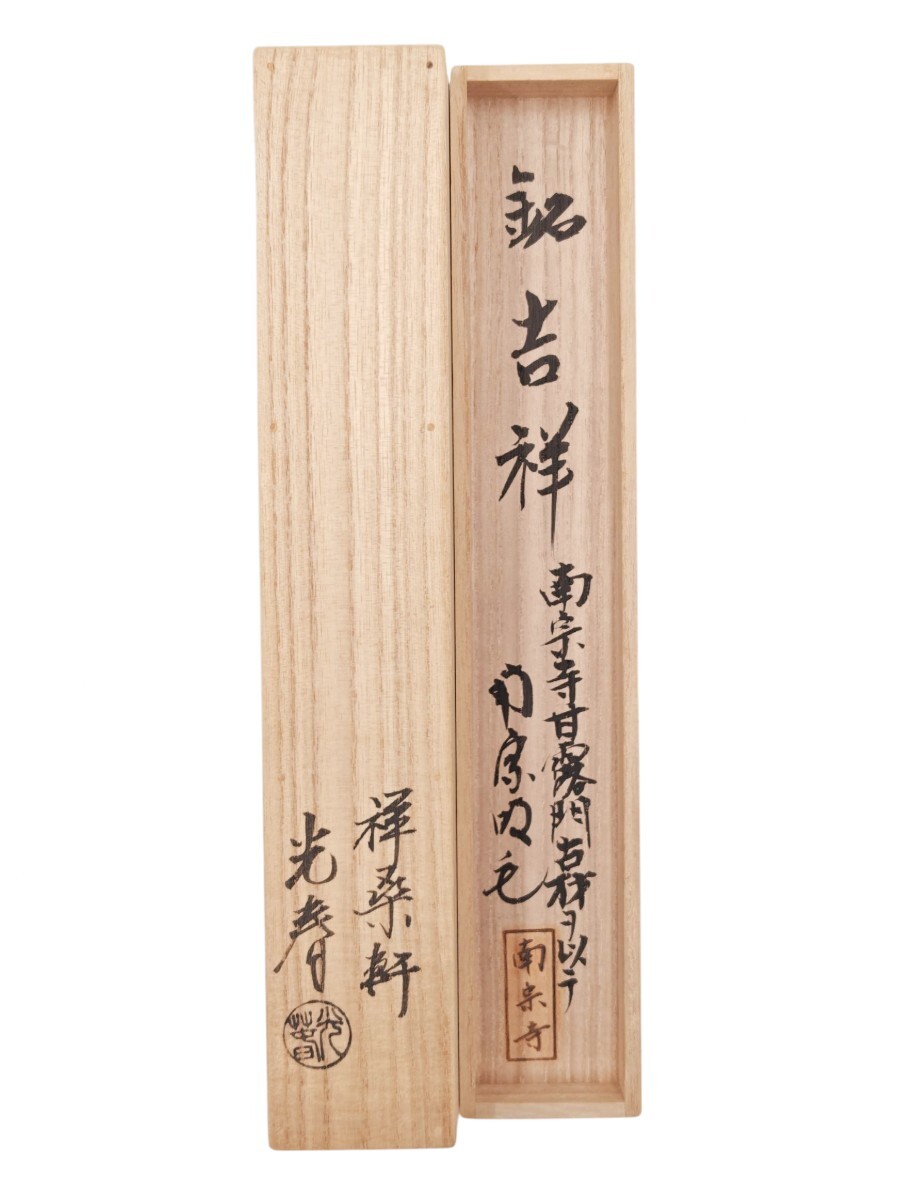 銘
吉祥
南宗寺甘露門古材ヲ以テ
南宗寺
祥桑軒
光春
光春